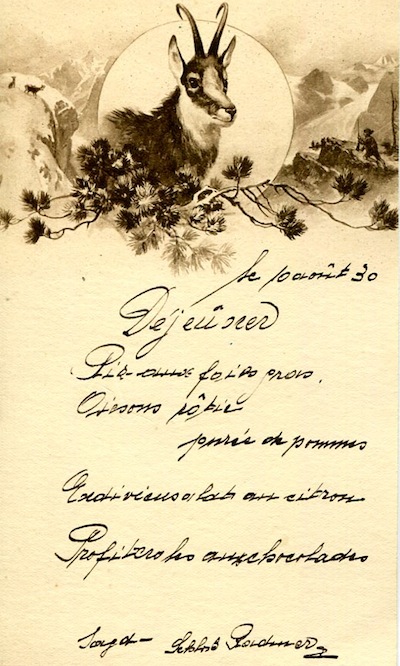 le 10 août 30
Déjeûner
Riz aux foies gras.
Oisons rôtis
purée de pommes
Endiviensalat au citron
Profiteroles aux chocolades
Jagd- Schloß Radmer